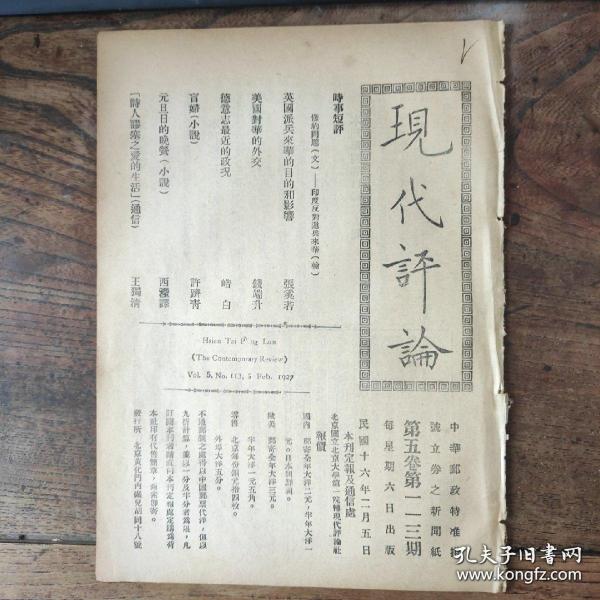 現代評論
中華郵政特准掛
號立券之新聞紙
第五卷第一一三期
每星期六日出版
民國十六年二月五日
本刊定報及通信處
北京國立北京大學第一院轉現代評論社
報價
國內 郵寄全年大洋二元,半年大洋一
元。日本與國內同。
歐美 郵寄全年大洋三元。
半年大洋一元五角。
零售 北京每份銅元拾四枚。
外埠大洋五分。
不通郵匯之處得以中國郵票代洋,但以
九折計算,並以一分及半分者為限,凡
訂閱本刊者請直向本刊定報處定購為荷
本社印有代售簡章,函索即寄。
發行所 北京黃化門內碾兒胡同十八號
時事短評
修約問題(文)——印度反對遣兵來華(翰)
英國派兵來華的目的和影響 張奚若
美國對華的外交 錢端升
德意志最近的政況 皓白
盲婦(小說) 許躋青
元旦日的晚餐(小說) 西瀅譯
「詩人謬塞之愛的生活」(通信) 王獨清
Hsien Tai P'ing Lun
(The Contemporary Review)
Vol. 5, No. 113, 5 Feb. 1927
孔夫子旧书网
www.kongfz.com